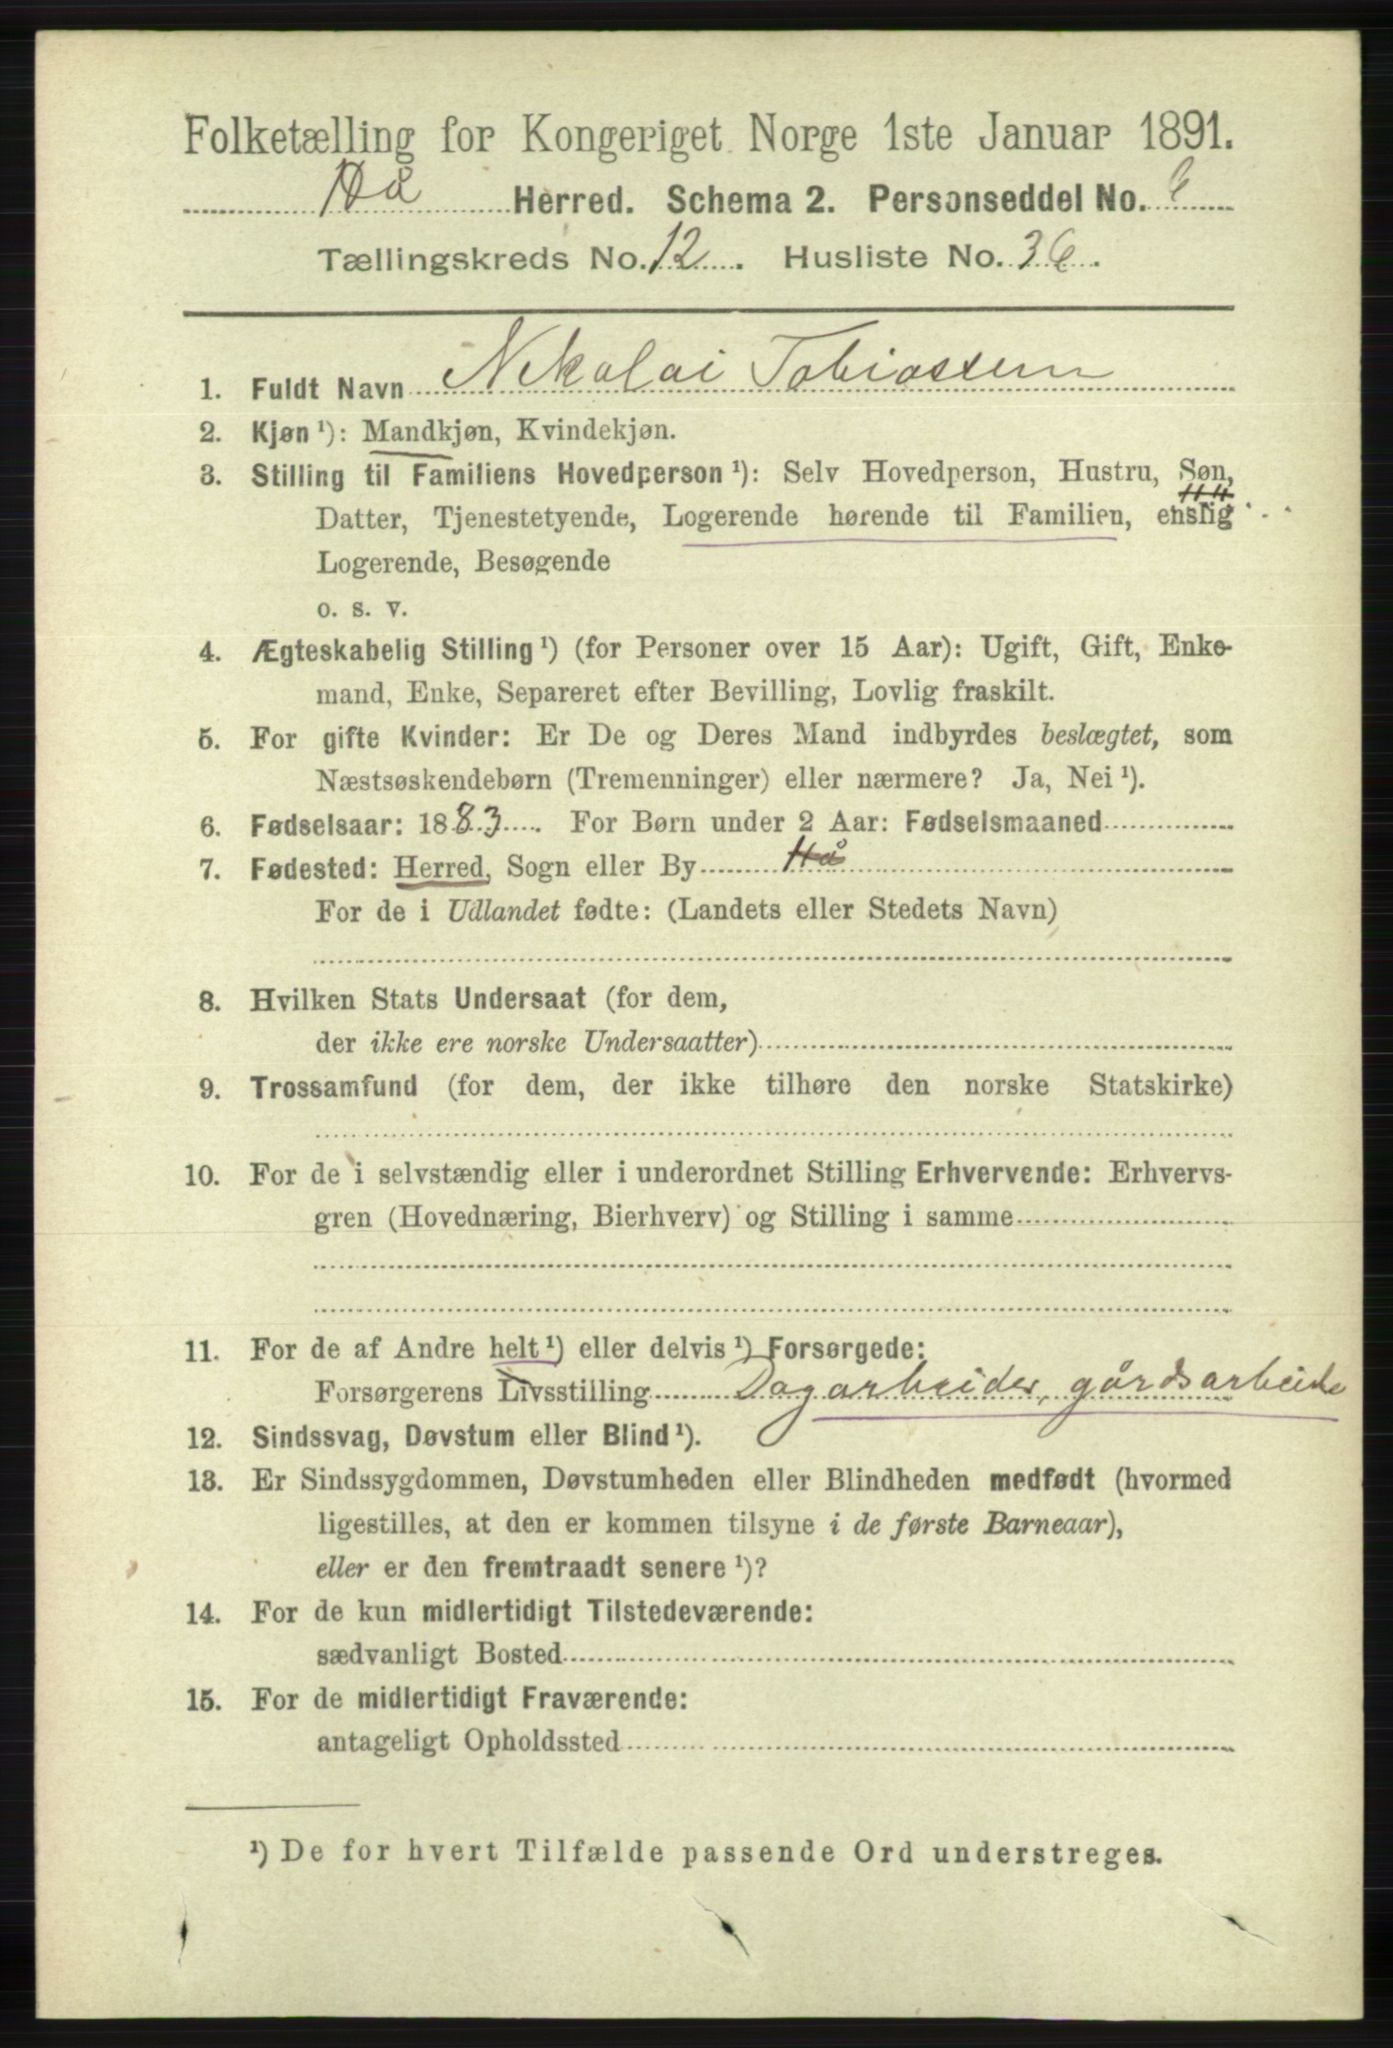 Folketælling for Kongeriget Norge 1ste Januar 1891.
Hå Herred. Schema 2. Personseddel No.
Tællingskreds No. 12. Husliste No. 36.
1. Fuldt Navn Nikolai Tobiassen
2. Kjøn ¹): Mandkjøn, Kvindekjøn.
3. Stilling til Familiens Hovedperson ¹): Selv Hovedperson, Hustru, Søn,
Datter, Tjenestetyende, Logerende hørende til Familien, enslig
Logerende, Besøgende
o. s. v.
4. Ægteskabelig Stilling ¹) (for Personer over 15 Aar): Ugift, Gift, Enke-
mand, Enke, Separeret efter Bevilling, Lovlig fraskilt.
5. For gifte Kvinder: Er De og Deres Mand indbyrdes beslægtet, som
Næstsøskendebørn (Tremenninger) eller nærmere? Ja, Nei ¹).
6. Fødselsaar: 1883. For Børn under 2 Aar: Fødselsmaaned
7. Fødested: Herred, Sogn eller By Hå
For de i Udlandet fødte: (Landets eller Stedets Navn)
8. Hvilken Stats Undersaat (for dem,
der ikke ere norske Undersaatter)
9. Trossamfund (for dem, der ikke tilhøre den norske Statskirke)
10. For de i selvstændig eller i underordnet Stilling Erhvervende: Erhvervs-
gren (Hovednæring, Bierhverv) og Stilling i samme
11. For de af Andre helt ¹) eller delvis ¹) Forsørgede:
Forsørgerens Livsstilling Dagarbeider, gårdsarbeide
12. Sindssvag, Døvstum eller Blind ¹).
13. Er Sindssygdommen, Døvstumheden eller Blindheden medfødt (hvormed
ligestilles, at den er kommen tilsyne i de første Barneaar),
eller er den fremtraadt senere ¹)?
14. For de kun midlertidigt Tilstedeværende:
sædvanligt Bosted
15. For de midlertidigt Fraværende:
antageligt Opholdssted
¹) De for hvert Tilfælde passende Ord understreges.